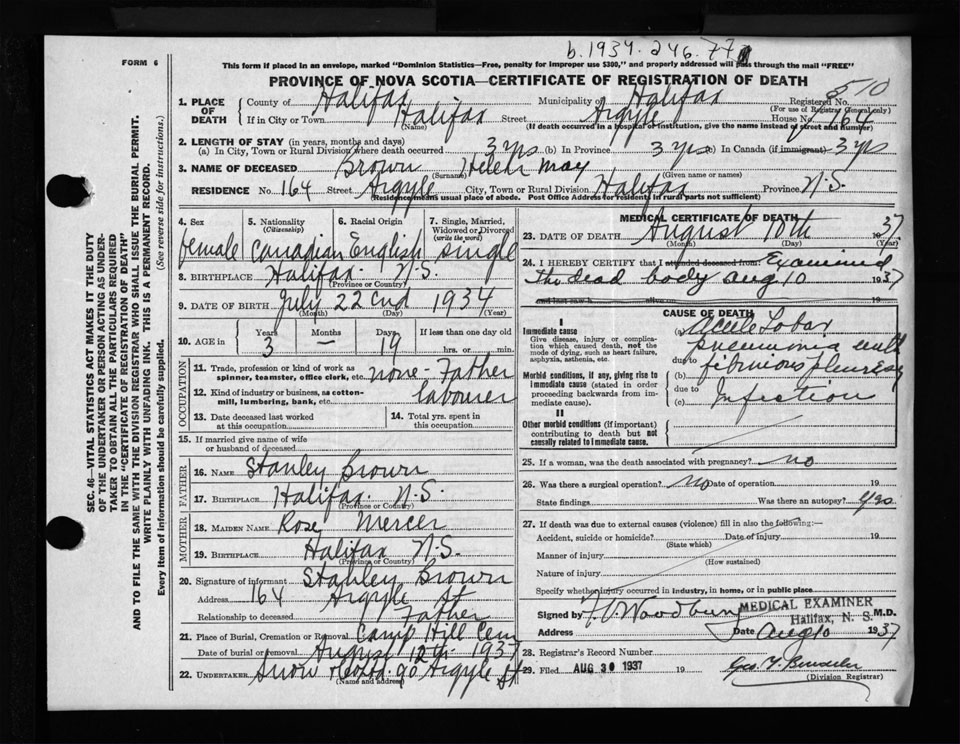 b. 1934. 246. 77
FORM 6
This form if placed in an envelope, marked "Dominion Statistics—Free, penalty for improper use $300," and properly addressed will pass through the mail "FREE"
PROVINCE OF NOVA SCOTIA—CERTIFICATE OF REGISTRATION OF DEATH
510
1. PLACE OF DEATH County of Halifax Municipality of Halifax Registered No.
(For use of Registrar General only)
If in City or Town Halifax Street Argyle House No. 164
(Name) (If death occurred in a hospital or institution, give the name instead of street and number)
2. LENGTH OF STAY (in years, months and days)
(a) In City, Town or Rural Division where death occurred 3 yrs (b) In Province 3 yrs (c) In Canada (if immigrant) 3 yrs
3. NAME OF DECEASED Brown Helen May
(Surname) (Given name or names)
RESIDENCE No. 164 Street Argyle City, Town or Rural Division Halifax Province N.S.
(Residence means usual place of abode. Post Office Address for residents in rural parts not sufficient)
4. Sex female
5. Nationality (Citizenship) Canadian
6. Racial Origin English
7. Single, Married, Widowed or Divorced (write the word) Single
8. BIRTHPLACE Halifax. N.S.
(Province or Country)
9. DATE OF BIRTH July 22nd 1934
(Month) (Day) (Year)
10. AGE in Years 3 Months — Days 19 If less than one day old hrs. or min.
OCCUPATION
11. Trade, profession or kind of work as spinner, teamster, office clerk, etc. none - Father
12. Kind of industry or business, as cotton-mill, lumbering, bank, etc. labourer
13. Date deceased last worked at this occupation
14. Total yrs. spent in this occupation
15. If married give name of wife or husband of deceased
FATHER
16. NAME Stanley Brown
17. BIRTHPLACE Halifax. N.S.
(Province or Country)
MOTHER
18. MAIDEN NAME Rose Mercer
19. BIRTHPLACE Halifax N.S.
(Province or Country)
20. Signature of informant Stanley Brown
Address 164 Argyle St
Relationship to deceased Father
21. Place of Burial, Cremation or Removal Camp Hill Cem
Date of burial or removal August 12th 1937
22. UNDERTAKER Snow & Co Ltd. 90 Argyle St
(Name and address)
MEDICAL CERTIFICATE OF DEATH
23. DATE OF DEATH August 10th 1937
(Month) (Day) (Year)
24. I HEREBY CERTIFY that I attended deceased from: Examined
the dead body Aug 10 1937
and last saw h alive on 19
CAUSE OF DEATH
I
Immediate cause
Give disease, injury or complication which caused death, not the mode of dying, such as heart failure, asphyxia, asthenia, etc.
(a) Acute Lobar
pneumonia with
due to
Morbid conditions, if any, giving rise to immediate cause (stated in order proceeding backwards from immediate cause).
(b) fibrinous pleurisy
due to
(c) Infection
II
Other morbid conditions (if important) contributing to death but not causally related to immediate cause.
25. If a woman, was the death associated with pregnancy? no
26. Was there a surgical operation? no Date of operation 19
State findings Was there an autopsy? yes
27. If death was due to external causes (violence) fill in also the following:—
Accident, suicide or homicide? Date of injury 19
(State which)
Manner of injury
(How sustained)
Nature of injury
Specify whether injury occurred in industry, in home, or in public place
Signed by Woodbury MEDICAL EXAMINER M.D.
Halifax, N. S.
Address Date Aug 10 1937
28. Registrar's Record Number
29. Filed AUG 30 1937 19
(Division Registrar)
SEC. 46—VITAL STATISTICS ACT MAKES IT THE DUTY
OF THE UNDERTAKER OR PERSON ACTING AS UNDER-
TAKER TO OBTAIN ALL THE PARTICULARS REQUIRED
IN THE "CERTIFICATE OF REGISTRATION OF DEATH"
AND TO FILE THE SAME WITH THE DIVISION REGISTRAR WHO SHALL ISSUE THE BURIAL PERMIT.
WRITE PLAINLY WITH UNFADING INK. THIS IS A PERMANENT RECORD.
Every item of information should be carefully supplied. (See reverse side for instructions.)